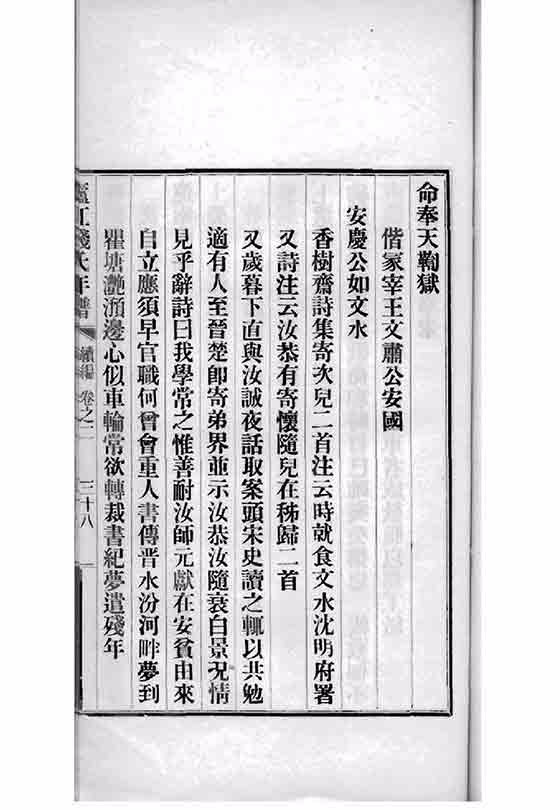 命奉天鞫獄
偕冢宰王文肅公安國
安慶公如文水
香樹齋詩集寄次兒二首注云時就食文水沈明府署
又詩注云汝恭有寄懷隨兒在秭歸二首
又歲暮下直與汝誠夜話取案頭宋史讀之輒以共勉
適有人至晉楚卽寄弟界並示汝恭汝隨衰白景況情
見乎辭詩曰我學常之惟善耐汝師元獻在安貧由來
自立應須早官職何曾會重人書傳晋水汾河畔夢到
瞿塘灔澦邊心似車輪常欲轉裁書紀夢遣殘年
廬江錢氏年譜 續編 卷之二 三十八